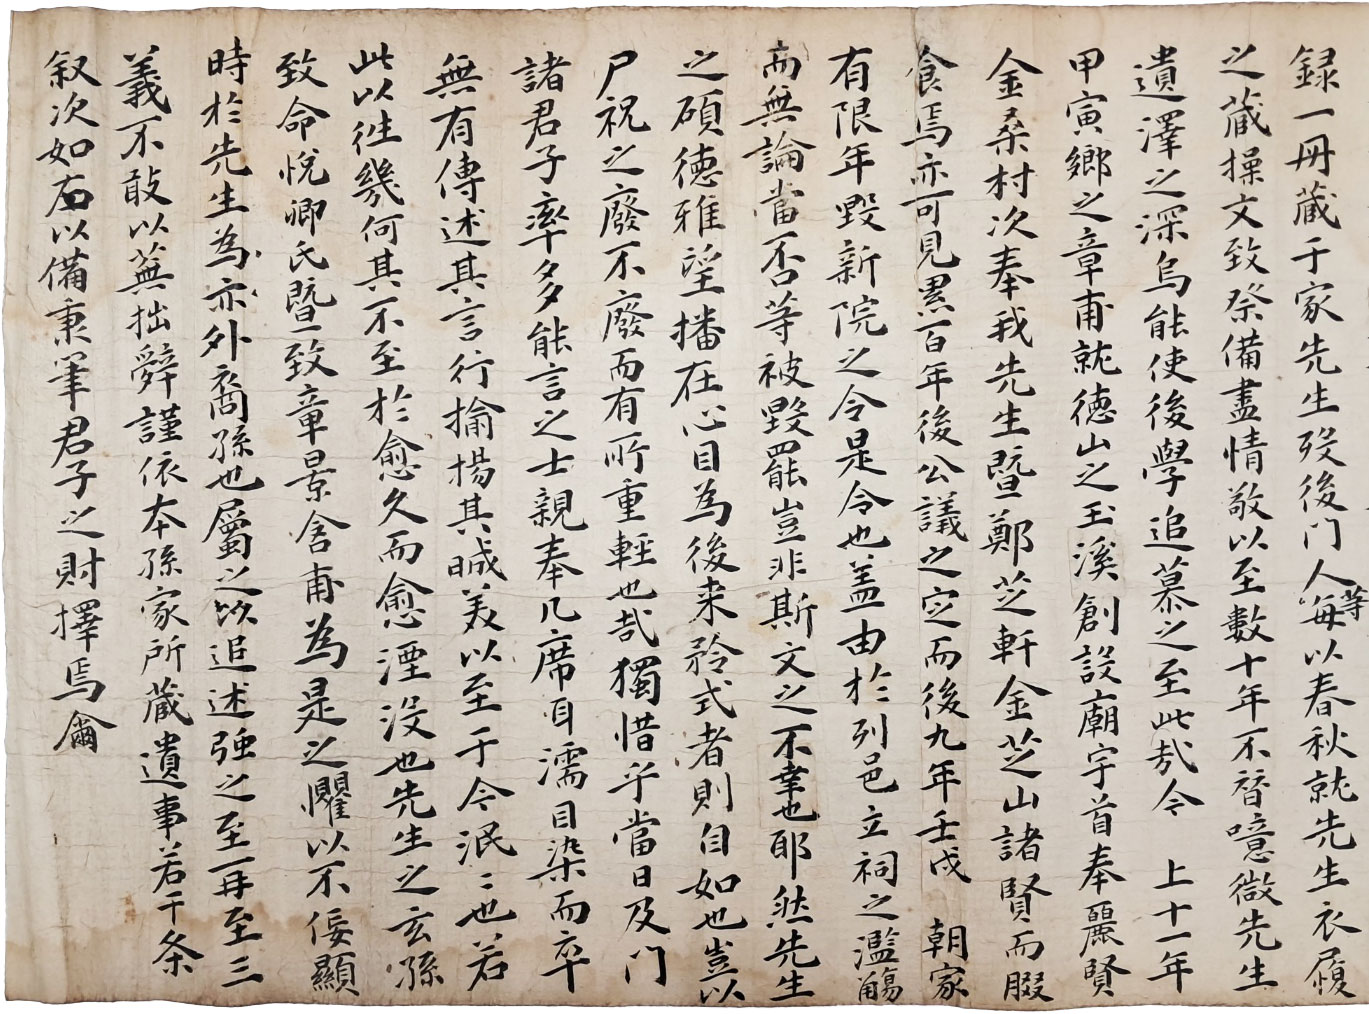 録一冊藏于家先生歿後门人等每以春秋就先生衣履
之藏操文致祭備盡情敬以至數十年不替噫微先生
遺澤之深烏能使後學追慕之至此哉今 上十一年
甲寅鄉之章甫就德山之玉溪創設廟宇首奉麗賢
金桑村次奉我先生暨鄭芝軒金芝山諸賢而腏
食焉亦可見累百年後公議之定而後九年壬戌 朝家
有限年毀新院之令是令也盖由於列邑立祠之濫觴
而無論當不否等被毀罷豈非斯文之不幸也耶然先生
之碩德雅望播在心目為後来矜式者則自如也豈以
尸祝之廢不廢而有所重輕也哉獨惜乎當日及门
諸君子率多能言之士親奉几席耳濡目染而卒
無有傳述其言行揄揚其媺美以至于今泯〻也若
此以徃幾何其不至於愈久而愈湮没也先生之玄孫
致命悅卿氏暨致章景舍甫為是之懼以不佞顯
時於先生為亦外裔孫也屬之以追述强之至再至三
義不敢以蕪拙辭謹依本孫家所藏遺事若干条
叙次如右以備秉筆君子之財擇焉爾